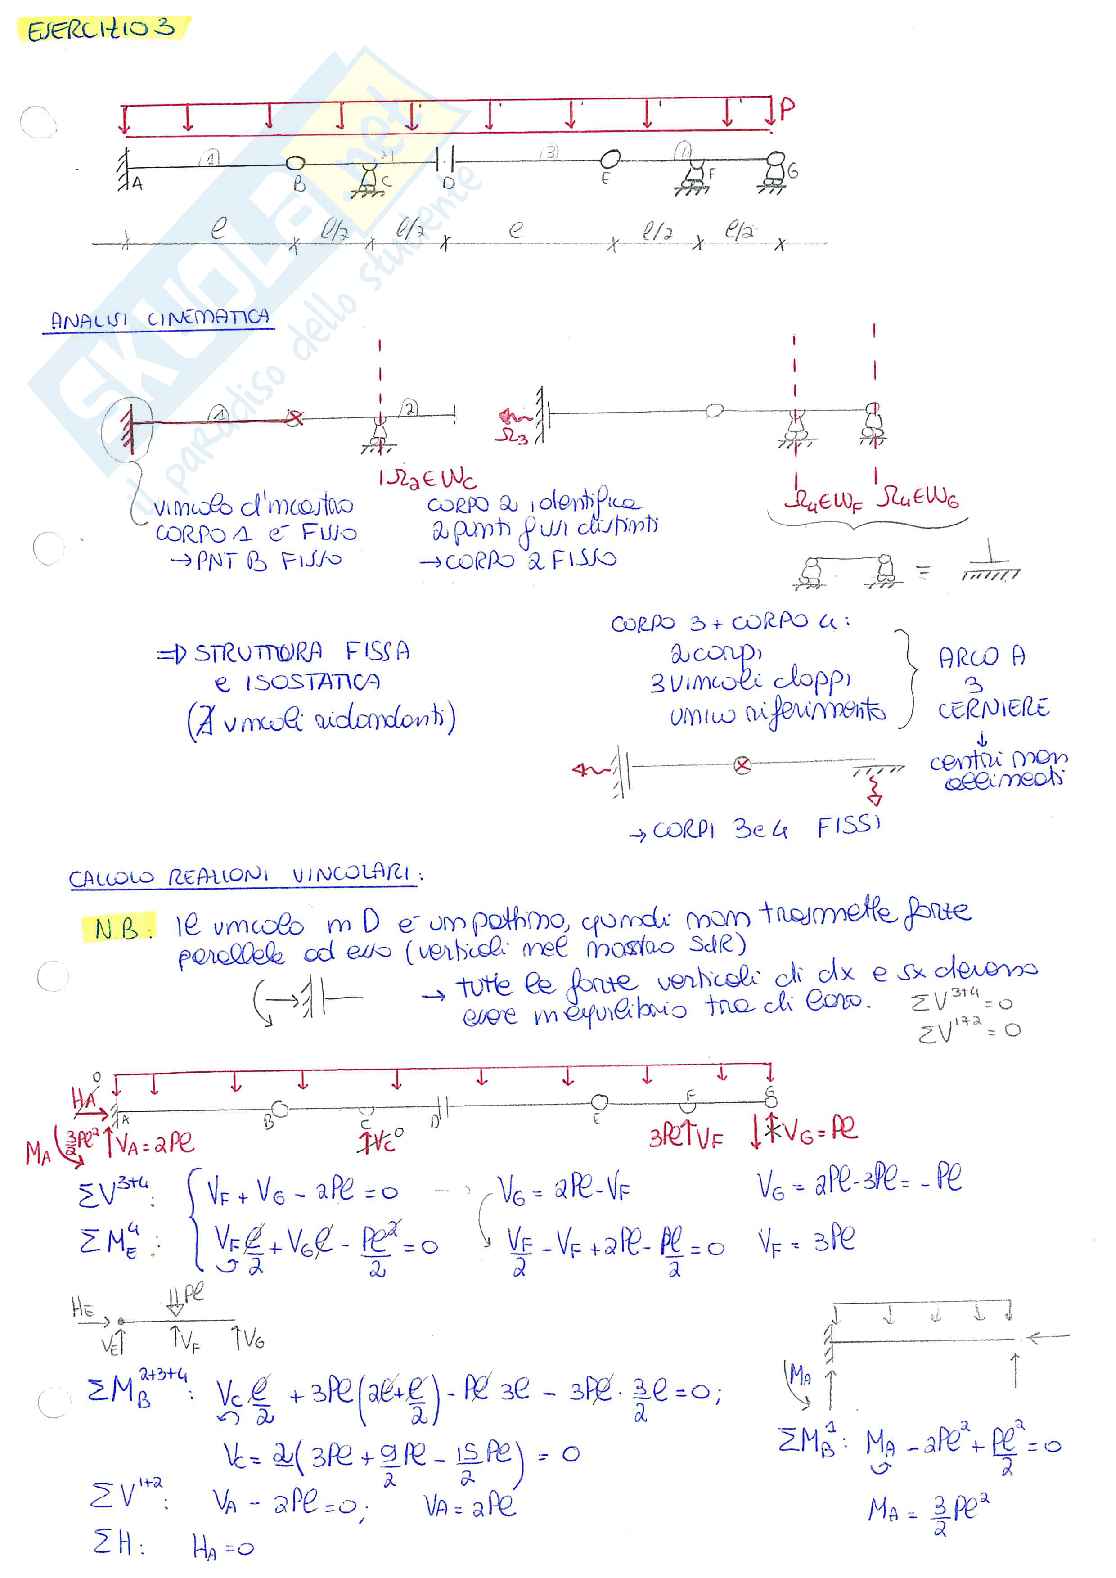 ESERCIZIO 3
P
1 2 3 4
A B C D E F G
l l/2 l/2 l l/2 l/2
SKUOLA.net
il paradiso dello studente
ANALISI CINEMATICA
1 2
Ω3
Ω2 ∈ WC
Ω4 ∈ WF Ω4 ∈ WG
vincolo d'incastro
CORPO 1 è FISSO
→ PNT B FISSO
CORPO 2 identifica
2 punti fissi distinti
→ CORPO 2 FISSO
=
⇒ STRUTTURA FISSA
e ISOSTATICA
(∄ vincoli ridondanti)
CORPO 3 + CORPO 4:
2 corpi
3 vincoli doppi
unico riferimento
ARCO A
3
CERNIERE
↓
centri non
allineati
→ CORPI 3 e 4 FISSI
CALCOLO REAZIONI VINCOLARI:
N.B: Il vincolo in D è un pattino, quindi non trasmette forze
parallele ad esso (verticali nel nostro SdR)
→ tutte le forze verticali di dx e sx devono
essere in equilibrio tra di loro.
ΣV³⁺⁴ = 0
ΣV¹⁺² = 0
HA 0
A B C D E F G
MA 3/2 Pl² VA = 2Pl VC 0 3Pl VF VG = Pl
ΣV³⁺⁴: VF + VG - 2Pl = 0 VG = 2Pl - VF VG = 2Pl - 3Pl = -Pl
ΣM⁴E: VF l/2 + VG l - Pl²/2 = 0 VF/2 - VF + 2Pl - Pl/2 = 0 VF = 3Pl
Pl
HE
VE VF VG
MA
ΣMB²⁺³⁺⁴: VC l/2 + 3Pl (2l + l/2) - Pl 3l - 3Pl · 3/2 l = 0;
VC = 2(3Pl + 9/2 Pl - 15/2 Pl) = 0
ΣV¹⁺²: VA - 2Pl = 0; VA = 2Pl
ΣH: HA = 0
ΣMB¹: MA - 2Pl² + Pl²/2 = 0
MA = 3/2 Pl²